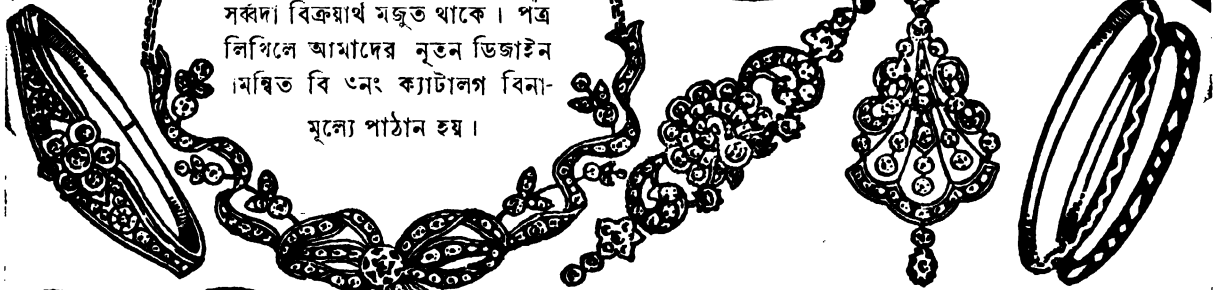 সর্ব্বদা বিক্রয়ার্থ মজুত থাকে। পত্র
লিখিলে আমাদের নূতন ডিজাইন
মন্বিত বি ৩নং ক্যাটালগ বিনা-
মূল্যে পাঠান হয়।